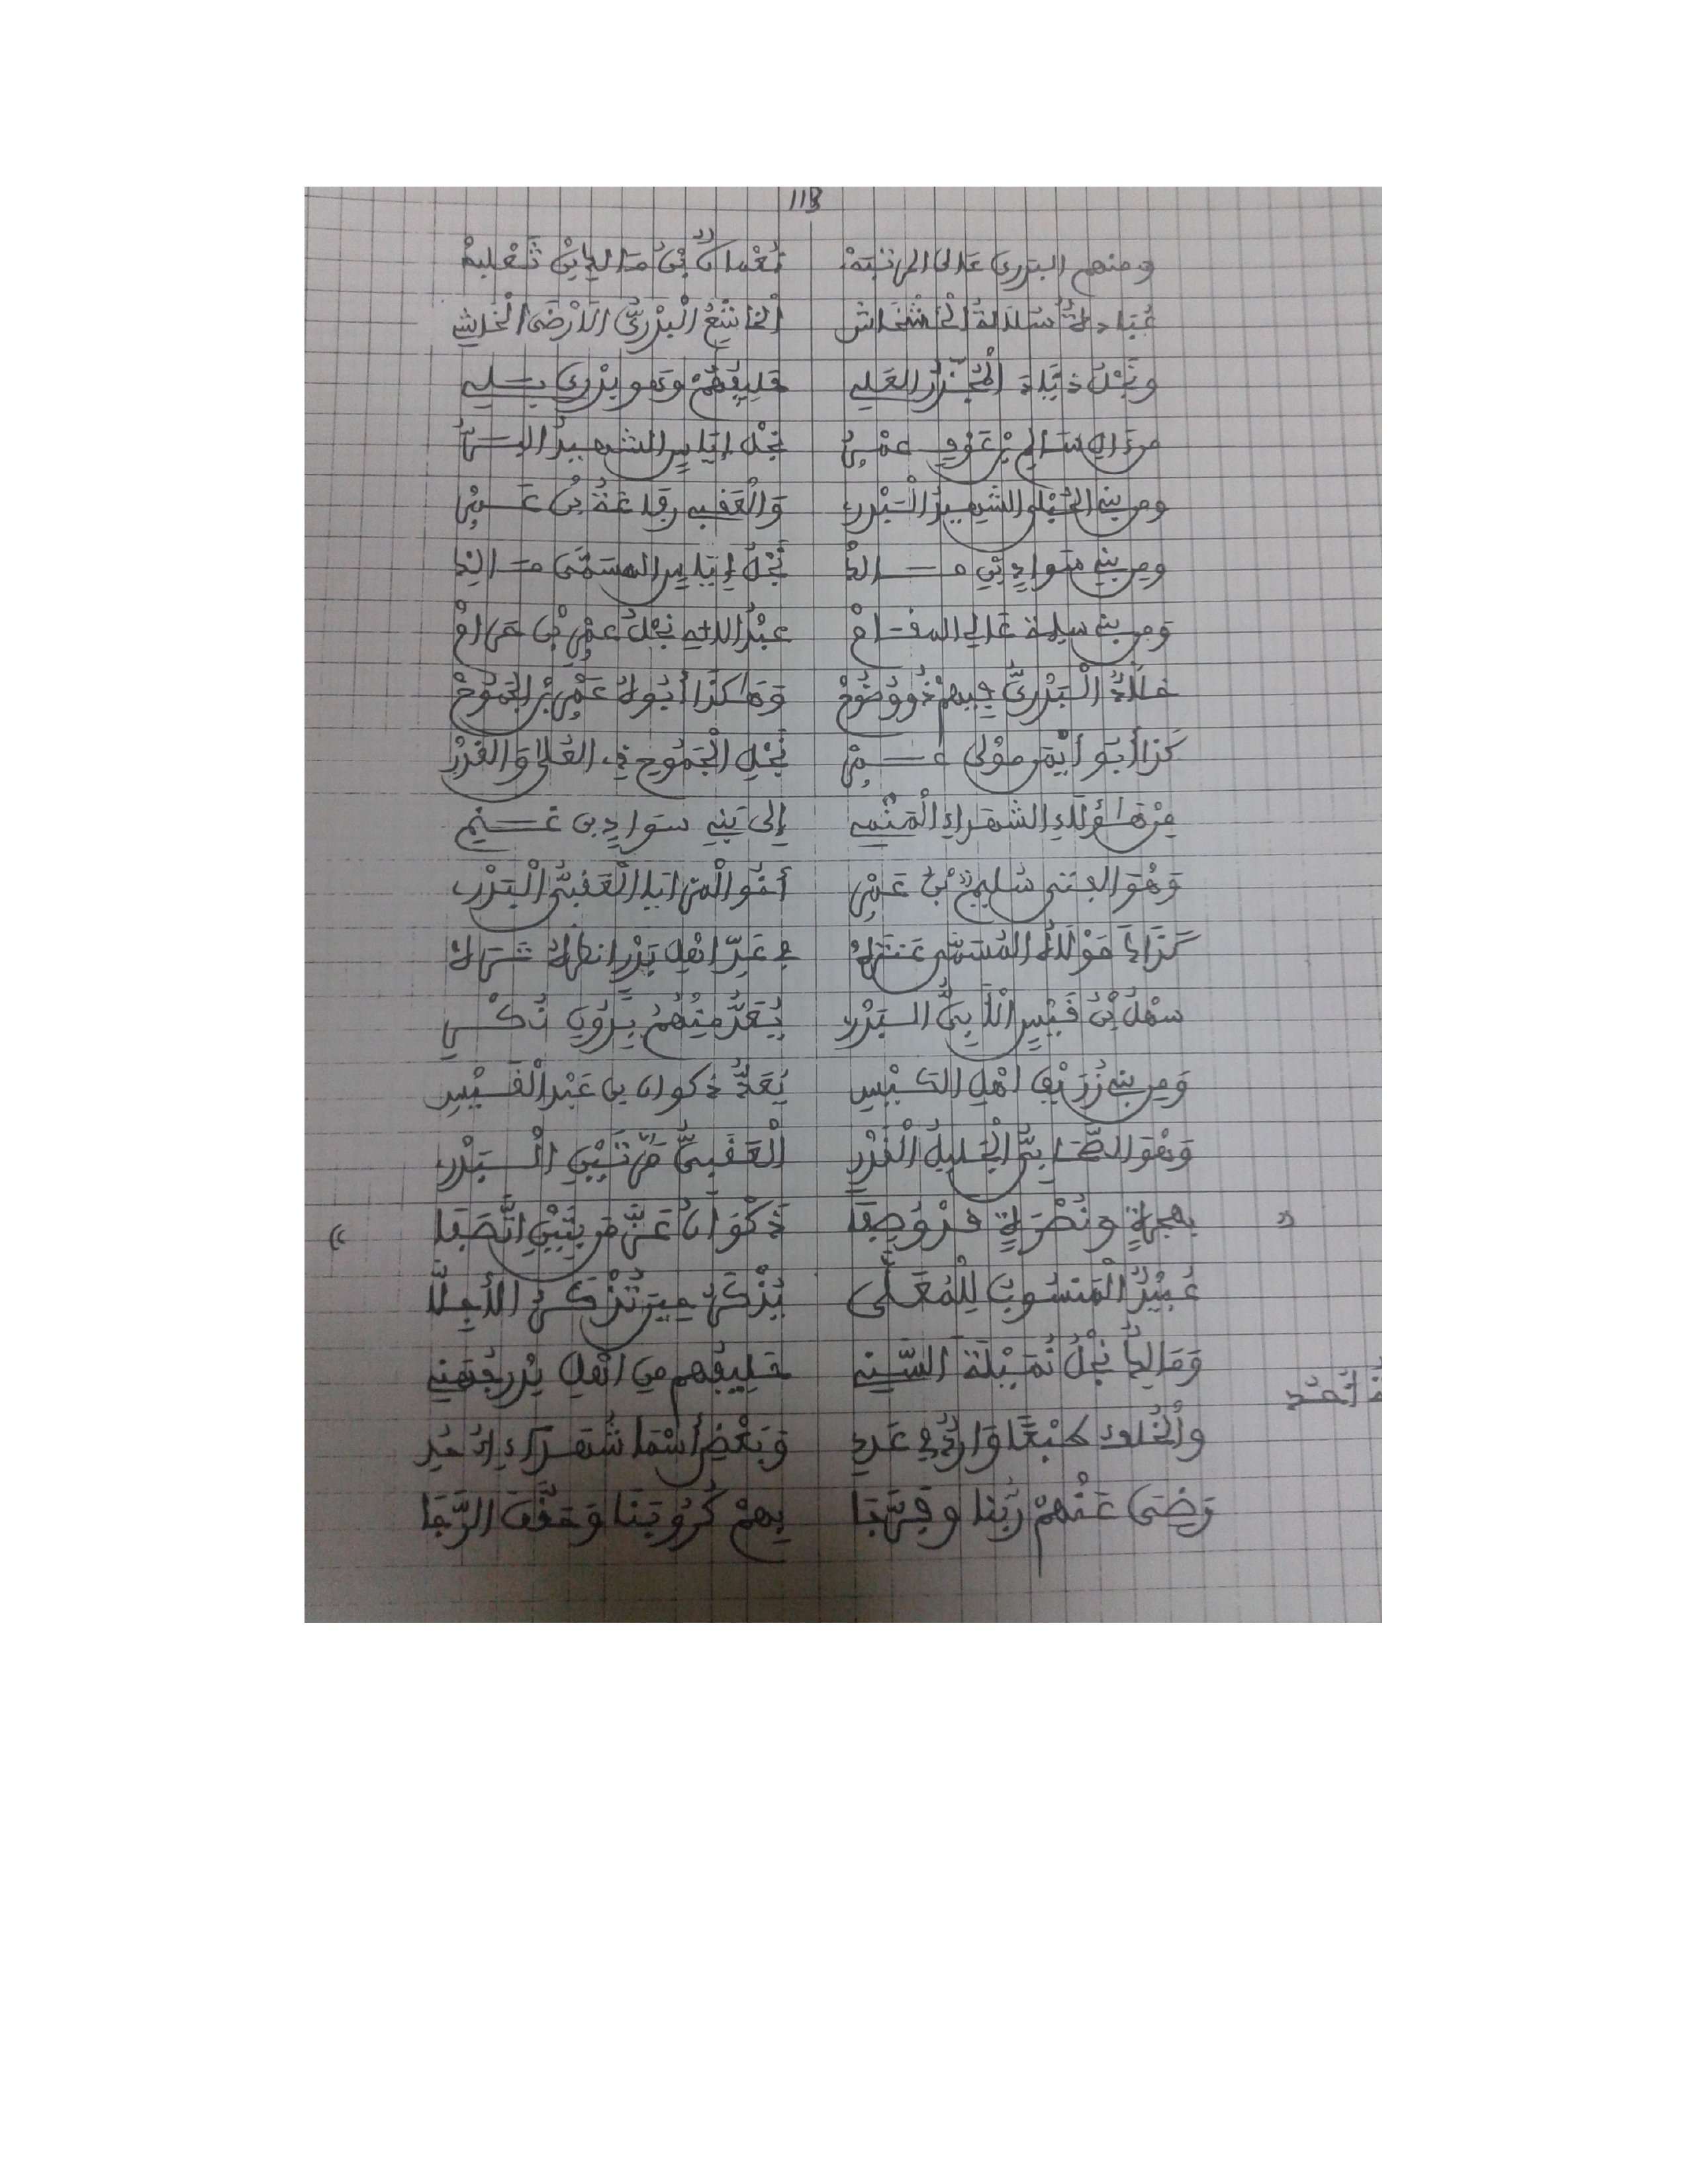 118
ومنهم البدري عالي المرتبه نعمان بن مالك بن ثعلبه
عبادة سلالة الخشخاش الخاشع البدري الارضى الخاش
ونجل ذياد المجذر العلي حليفهم وهو بدري بلي
من آل سالم بن عوف عمر نجل إياس الشهيد البر
ومن بني الحبلى الشهيد البدر والعقبي رفاعة بن عمر
ومن بني سواد بن مالك نجل إياس المسمى مالك
ومن بني سلمة عالي المقام عبد الله نجل عمر بن حرام
خلاد البدري فيهم ذو وضوح وهاكذا أبوه عمر بن الجموح
كذا أبو أيمن مولى عمر نجل الجموح في العلى والغرر
من هاؤلاء الشهداء المنتمي إلى بني سواد بن غنم
وهو الفتى سليم بن عمر أخو المزايا العقبي البدر
كذاك مولاه المسمى عنتره في عد اهل بدر انظره تره
سهل بن قيس الأبي البدر يعد منهم بدون نكر
ومن بني زريق اهل الكيس يعد ذكوان بن عبد القيس
وهو الصحابي الجليل القدر العقبي مرتين البدر
« بهجرة ونصرة قد وصفا ذكوان عز من بتين اتصفا »
عبيد المنسوب للمعلى يذكر حين تذكر الأجلا
وهاكذا نجل نميلة السني حليفهم من اهل بدر جهني
والخلف طبعا وارد في عد وبعض أسما شهداء احد
أحد
رضى عنهم ربنا وفرجا بهم كروبنا وحقق الرجا